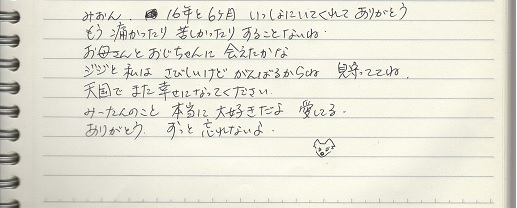 みおん、16年と6ヶ月 いっしょにいてくれて ありがとう
もう 痛かったり 苦しかったり することないね
お母さんと おじちゃんに 会えたかな
ジジと 私は さびしいけど がんばるからね 見守っててね、
天国で また 幸せになってください
みーたんのこと 本当に 大好きだよ 愛してる
ありがとう ずっと 忘れないよ